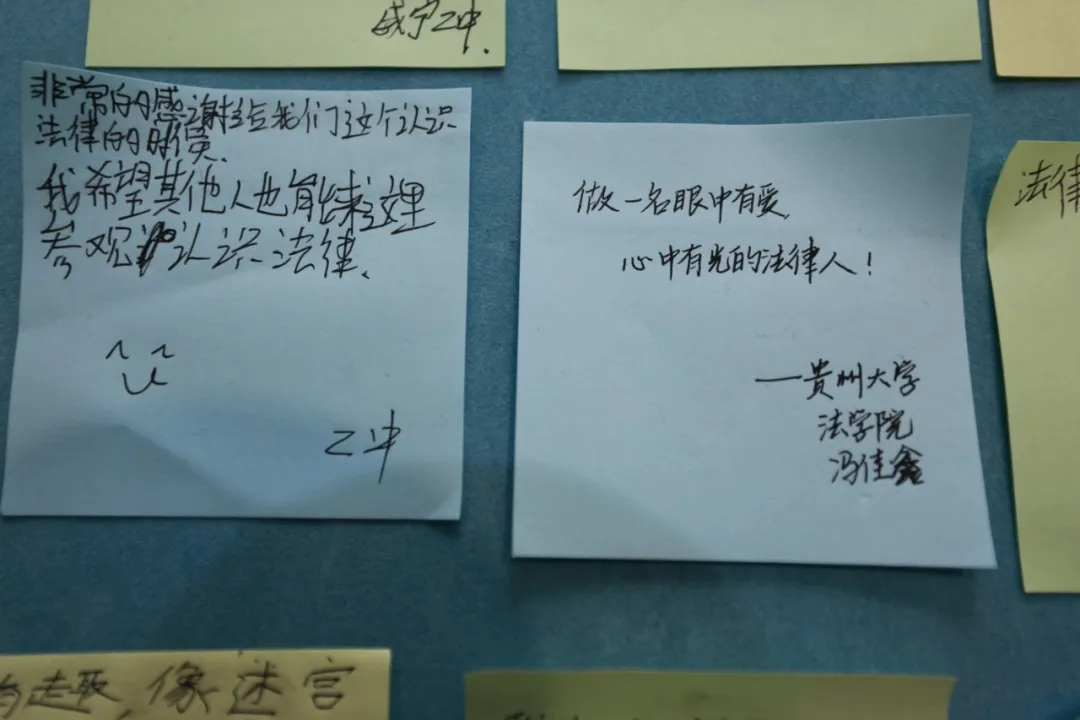 咸宁二中.
非常的感谢给我们这个认识
法律的
我希望其他人也能来这里
参观认识法律.
二中
做一名眼中有爱,
心中有光的法律人!
——贵州大学
法学院
冯佳鑫
法律
趣,像迷宫